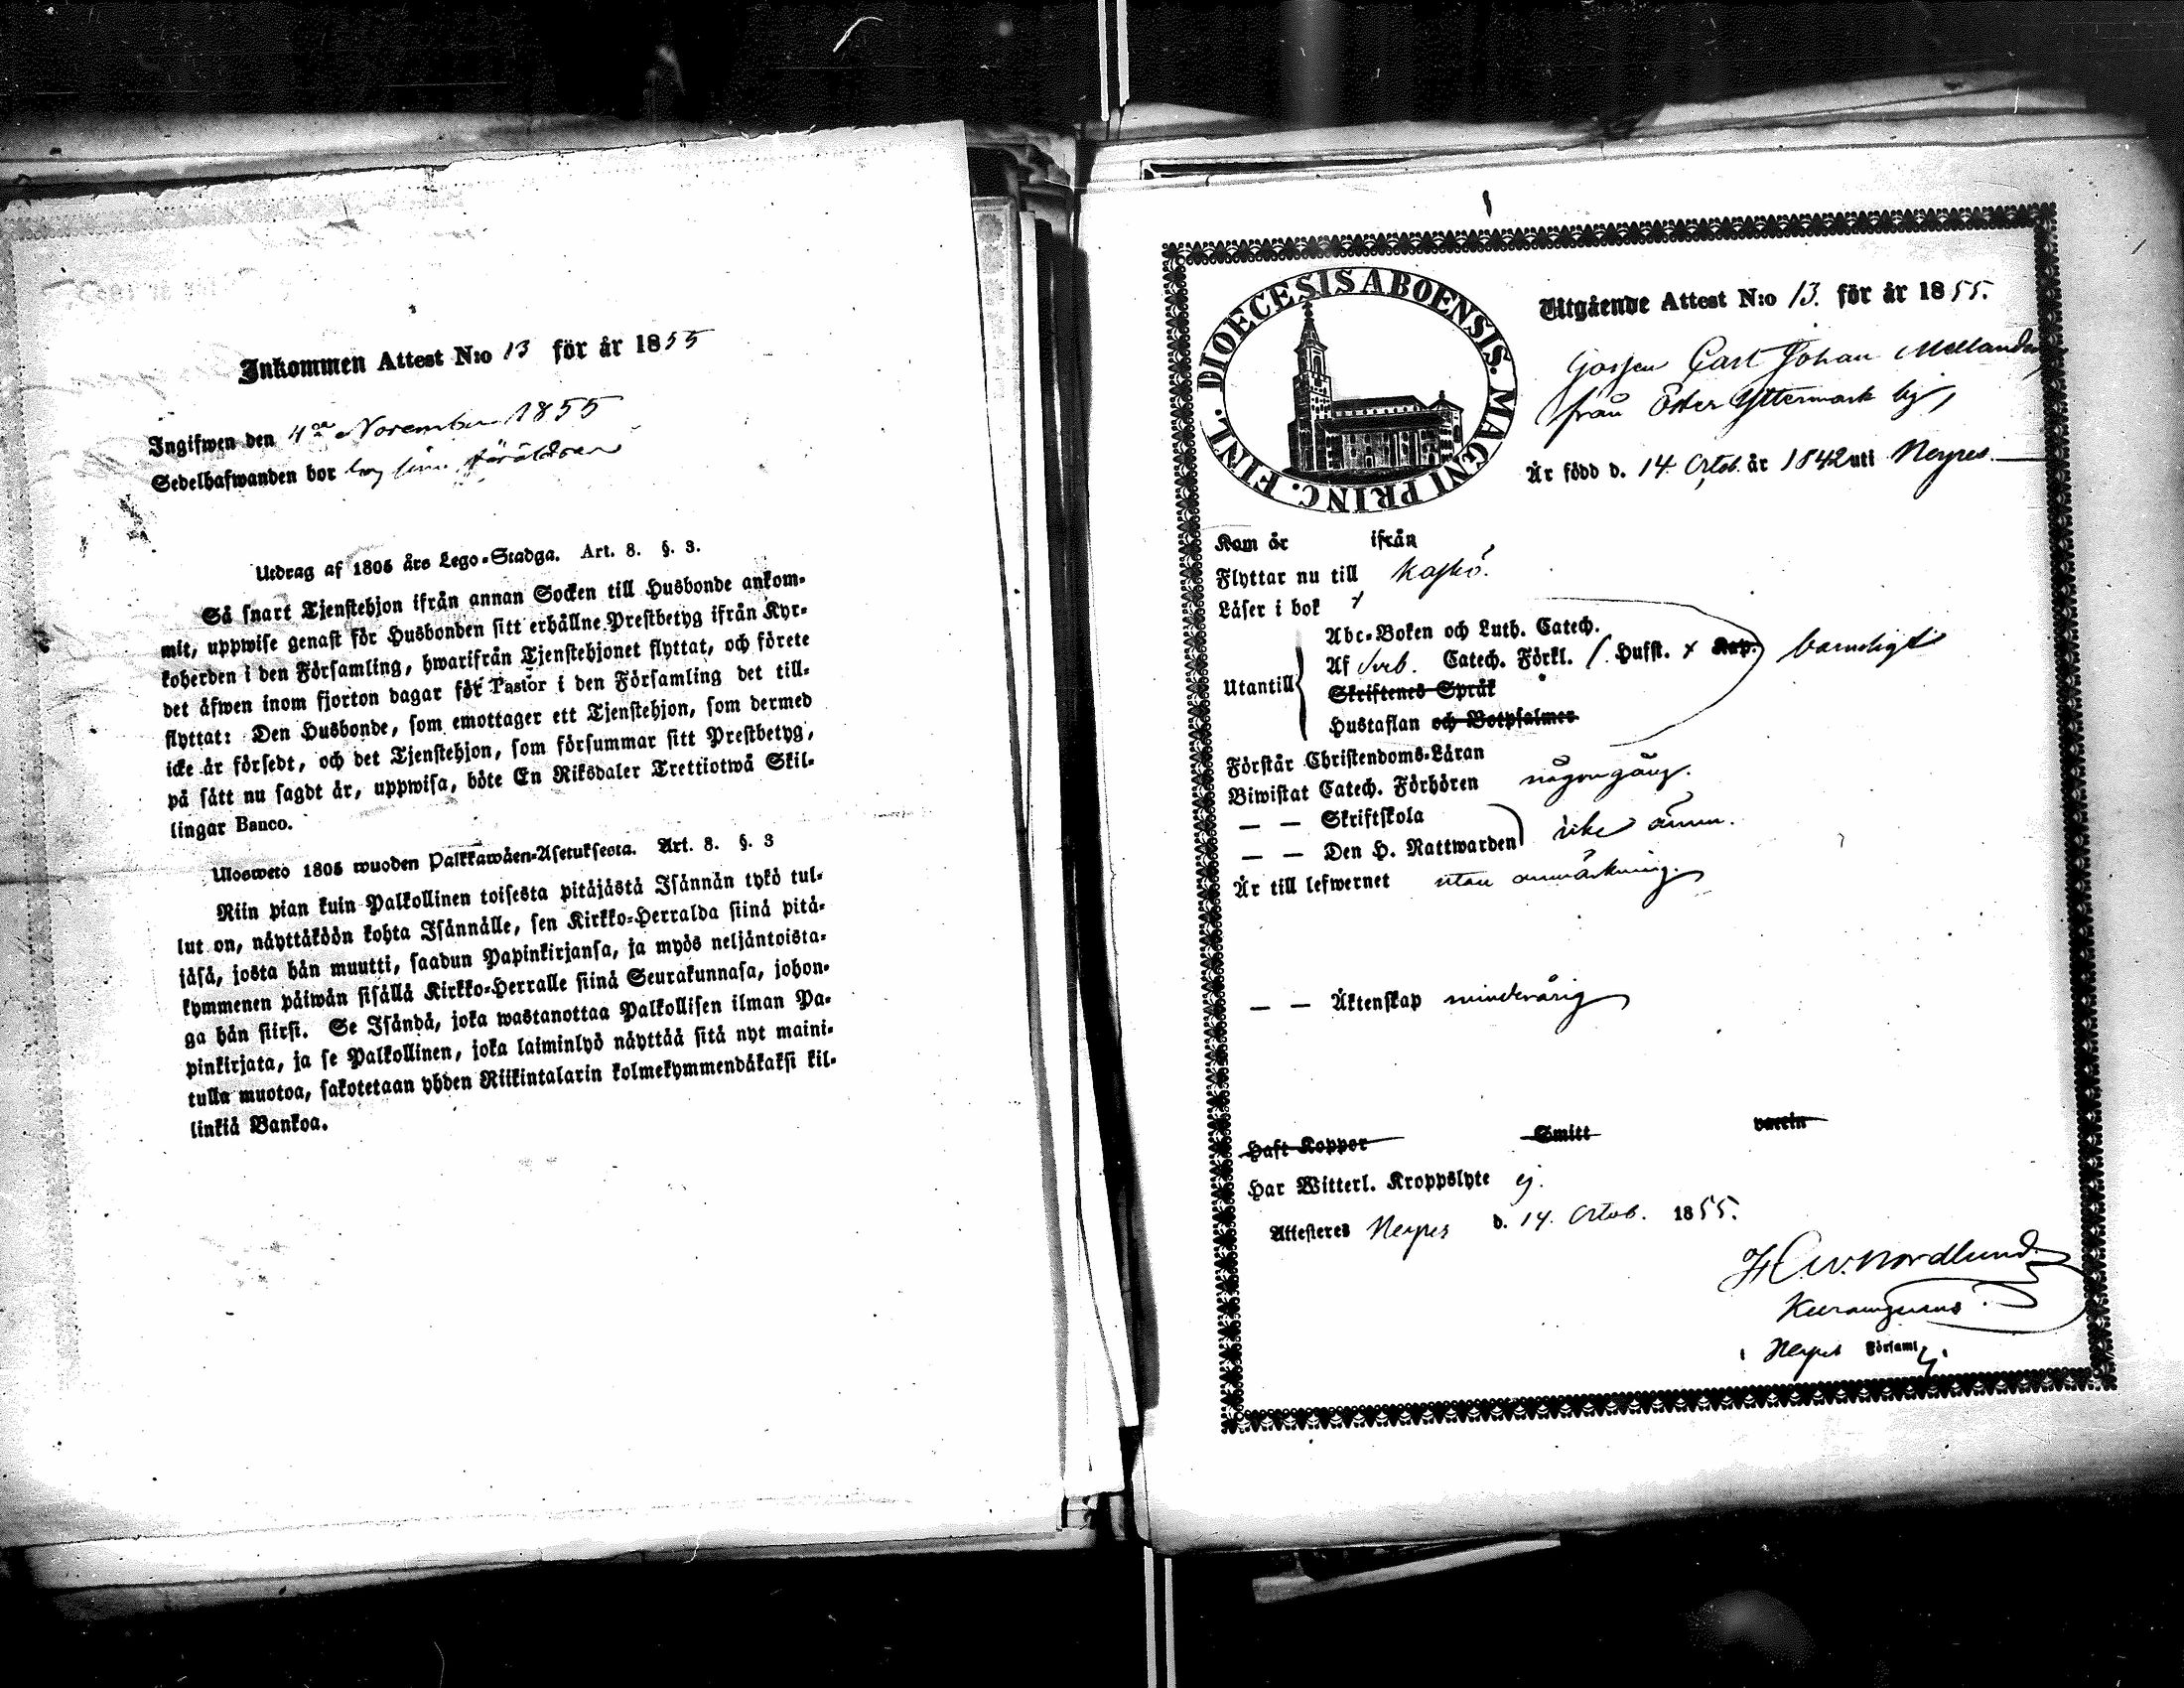 Inkommen Attest N:o 13 för år 1855
Ingifwen den 4de November 1855
Sedelhafwanden bor hos sina föräldrar
Utdrag af 1805 års Lego-Stadga. Art. 8. §. 3.
Så snart Tjenstehjon ifrån annan Socken till Husbonde ankom-
mit, uppwise genast för Husbonden sitt erhållne Prestbetyg ifrån Kyr-
koherden i den Församling, hwarifrån Tjenstehjonet flyttat, och förete
det äfwen inom fjorton dagar för Pastor i den Församling det till-
flyttat: Den Husbonde, som emottager ett Tjenstehjon, som dermed
icke är försedt, och det Tjenstehjon, som försummar sitt Prestbetyg,
på sätt nu sagdt är, uppwisa, böte En Riksdaler Trettiotwå Skil-
lingar Banco.
Ulosweto 1805 wuoden Palkkawäen-Asetuksesta. Art. 8. §. 3
Niin pian kuin Palkollinen toisesta pitäjästä Isännän tykö tul-
lut on, näyttäköön kohta Isännälle, sen Kirkko-Herralda siinä pitä-
jäsä, josta hän muutti, saadun Papinkirjansa, ja myös neljäntoista-
kymmenen päiwän sisällä Kirkko-Herralle siinä Seurakunnasa, johon-
ga hän siirsi. Se Isändä, joka wastanottaa Palkollisen ilman Pa-
pinkirjata, ja se Palkollinen, joka laiminlyö näyttää sitä nyt maini-
tulla muotoa, sakotetaan yhden Riikintalarin kolmekymmendäkaksi kil-
linkiä Bankoa.
DIOECESIS ABOENSIS. MAGNI PRINC. FINL.
Utgående Attest N:o 13. för år 1855.
gossen Carl Johan Mellander
från Öster Yttermark by,
Är född d. 14 Octob. år 1842 uti Nerpes.
Kom år ifrån
Flyttar nu till Kaskö.
Läser i bok +
Abc-Boken och Luth. Catech.
Utantill Af Sveb. Catech. Förkl. / Hufst. + Kap. barnsligt
Skriftenes Språk
Hustaflan och Botpsalmer
Förstår Christendoms-Läran
Biwistat Catech. Förhören någongång.
— — Skriftskola
— — Den H. Nattwarden icke ännu.
Är till lefwernet utan anmärkning.
— — Äktenskap minderårig
Haft Koppor Smitt vaccin
Har Witterl. Kroppslyte ej.
Attesteres Nerpes d. 14. Octob. 1855.
Nordlund
i Nerpes Församl.